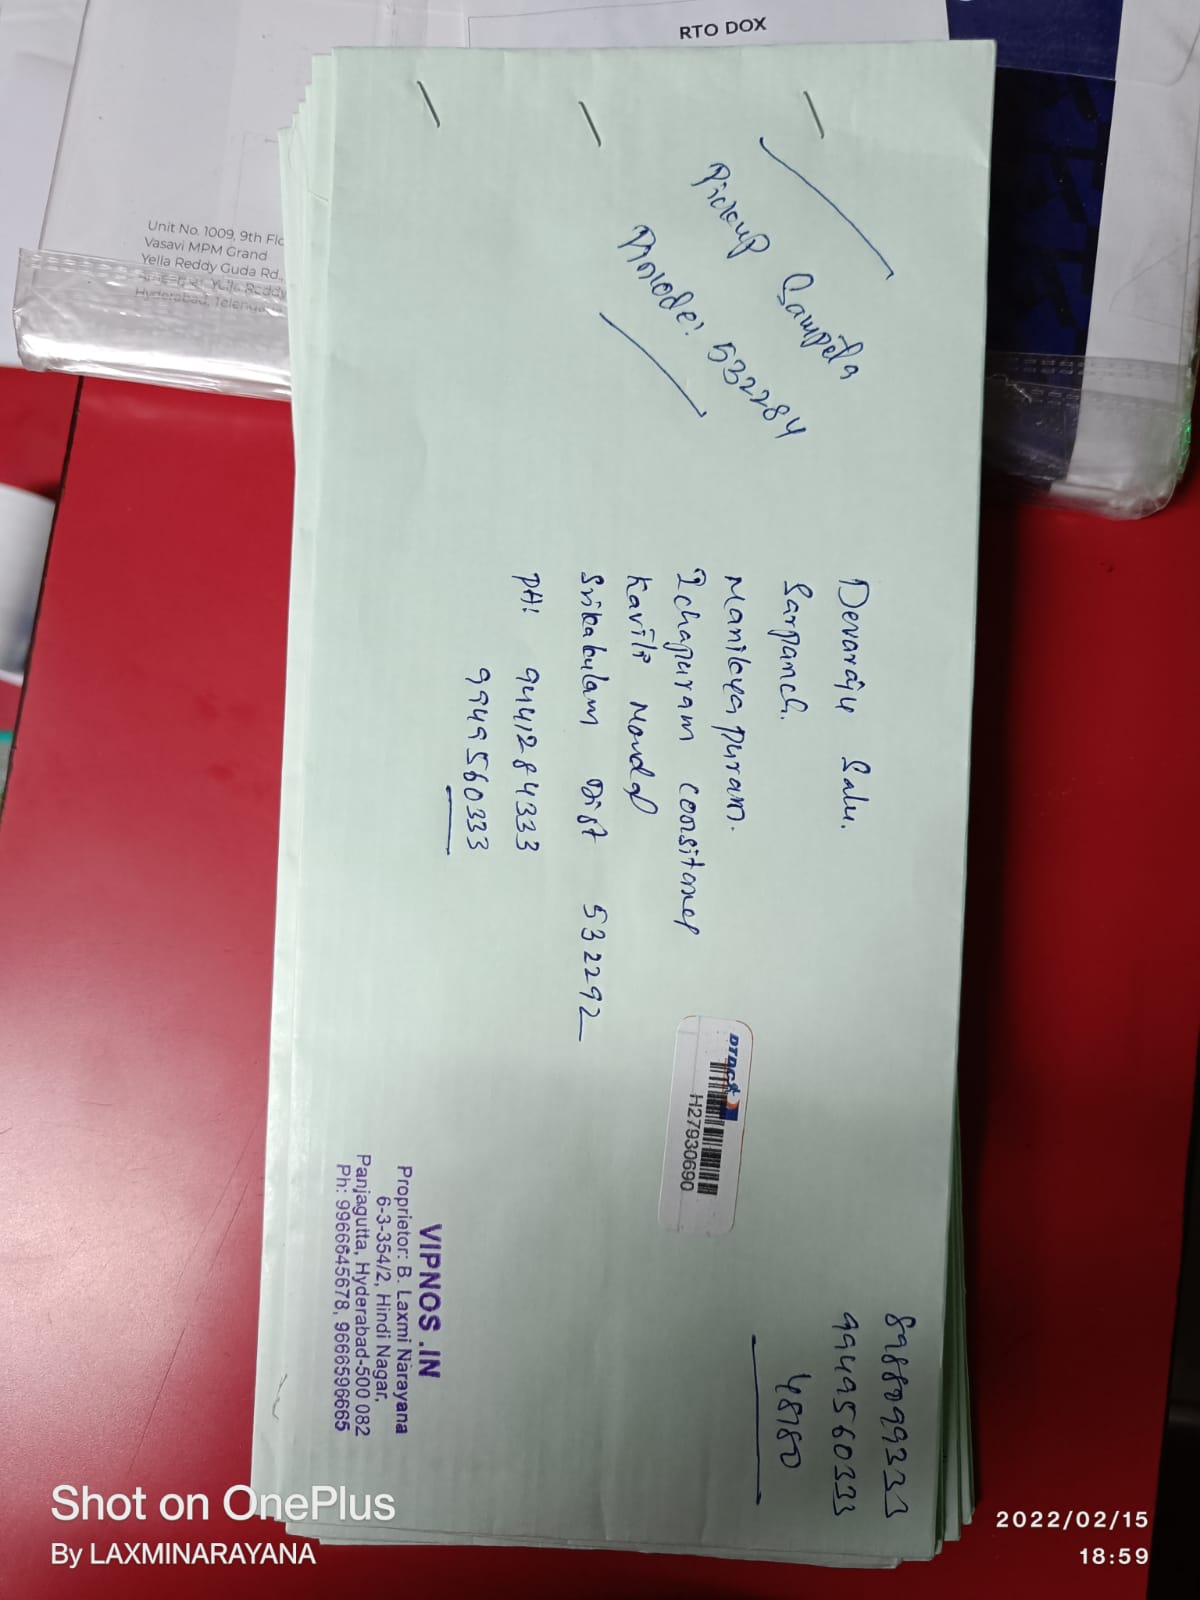 RTO DOX
Unit No. 1009, 9th Flo
Vasavi MPM Grand
Yella Reddy Guda Rd.,
Yella Reddy
Hyderabad, Telen
Pickup Sompeta
Pincode: 532284
Devaraju Salu.
Sarpanch.
Manikyapuram.
Ichapuram
Kaviti Mandal
Srikakulam Dist 532292
PH: 9441284333
9949560333
DTDC
H27930690
8988099333
9949560333
48180
VIPNOS .IN
Proprietor: B. Laxmi Narayana
6-3-354/2, Hindi Nagar,
Panjagutta, Hyderabad-500 082
Ph: 9966645678, 9666596665
Shot on OnePlus
By LAXMINARAYANA
2022/02/15
18:59